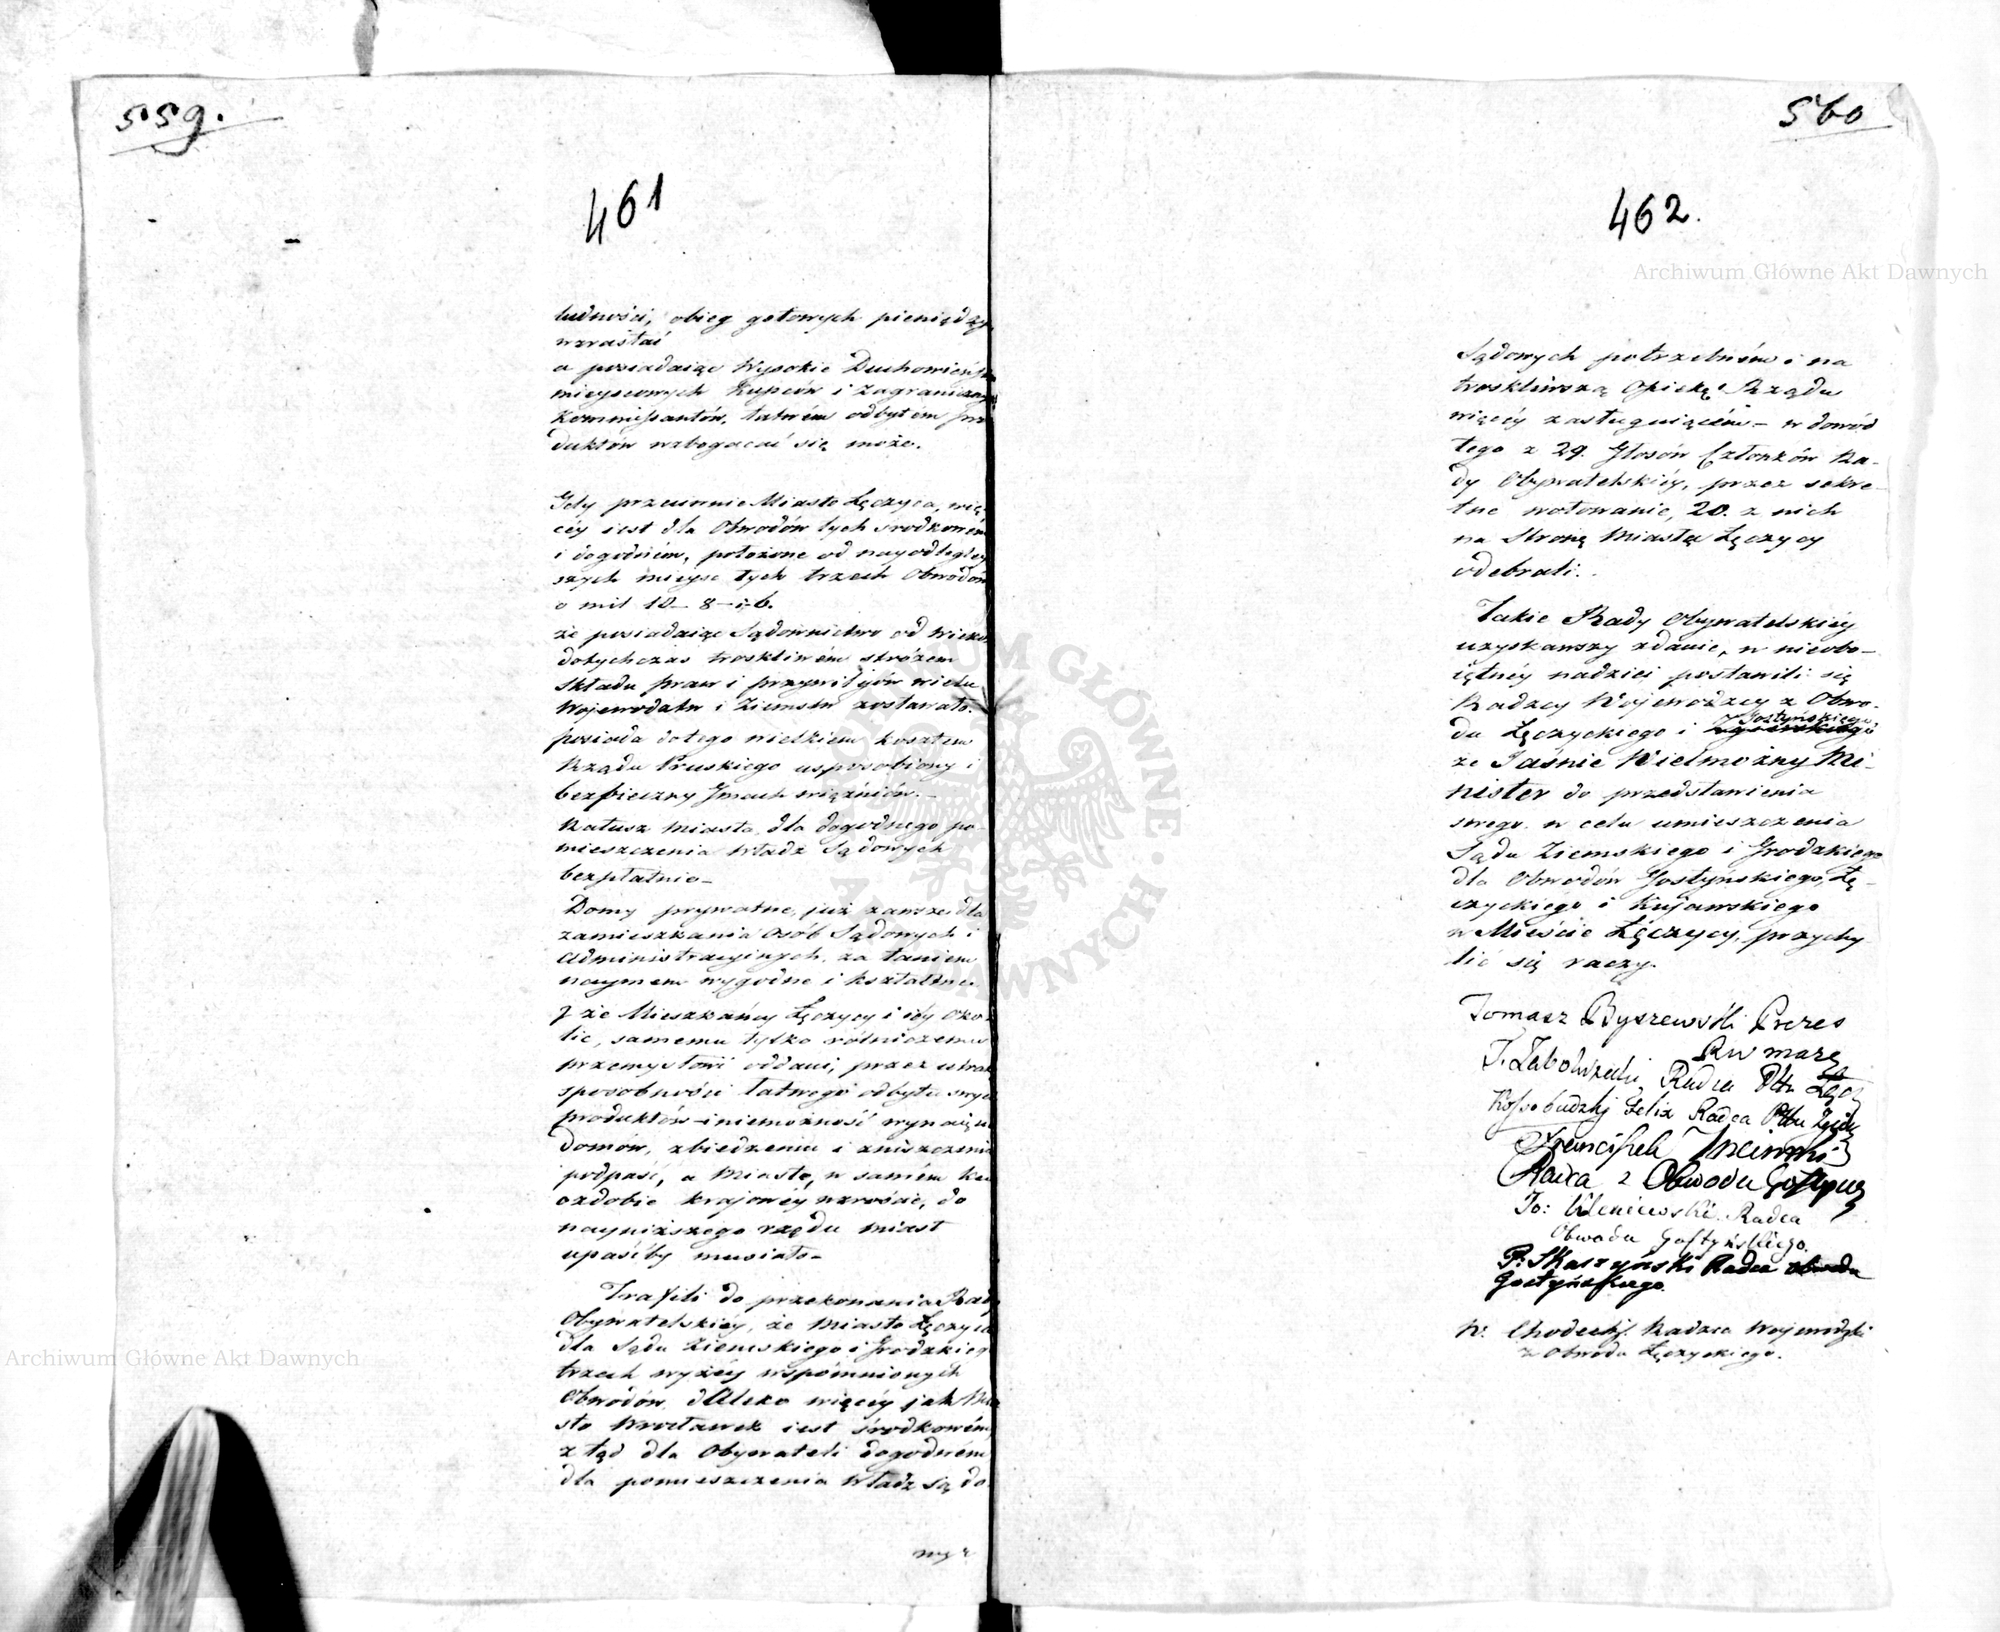 559.
461
ludności, obieg gotowych pieniędzy
wzrastać
a posiadaiąc Wysokie Duchowieńs
mieyscowych Kupców i zagraniczn
Kommissantów, łatwém odbytem pro
duktów wzbogacać się może.
Gdy przeciwnie Miasto Łęczyca, wię
céy iest dla Obwodów tych środkowém
i dogodném, położone od nayodległey
szych mieysc tych trzech Obwodów
o mil 10 – 8 – i 6.
że posiadaiąc Sądownictwo od wieków
dotychczas troskliwém stróżem
składu praw i przywilejów wielu
Wojewodztw i Ziemstw zostawało.
posiada do tego wielkiem kosztem
Rządu Pruskiego usposobiony i
bezpieczny Gmach więźniów. –
Ratusz Miasta dla dogodnego po
mieszczenia Władz Sądowych
bezpłatnie –
Domy prywatne, już zawsze dla
zamieszkania Osób Sądowych i
Administracyinych, za taniem
naymem wygodne i kształtne
że Mieszkańcy Łęczycy i iéy oko
lic, samemu tylko rólniczemu
przemysłowi oddani, przez utrat
sposobności łatwego odbytu swych
produktów i niemożność wynaięcia
domów, zbiedzeniu i zniszczeniu
podpaść, a Miasto, w samém ku
ozdobie krajowéy wzroście, do
nayniższego rzędu miast
upaśćby musiało –
Trafili do przekonania Rady
Obywatelskiéy, że Miasto Łęczyca
dla Sądu Ziemskiego i Grodzkiego
trzech wyżéy wspomnionych
Obwodów, daleko więcéy jak Mia
sto Wrocławek iest środkowém,
z tąd dla Obywateli dogodném
dla pomieszczenia Władz Sądo
wych
560
462.
Sądowych potrzebném i na
troskliwszą Opiekę Rządu
więcéy zasługuiącém – w dowód
tego z 29. Głosów Członków Ra-
dy Obywatelskiéy, przez sekre-
tne wotowanie, 20. z nich
na Stronę Miasta Łęczycy
odebrali.
Takie Rady Obywatelskiéy
uzyskawszy zdanie, w nieobo-
iętnéy nadziei postawili się
Radzcy Wojewódzcy z Obwo-
du Łęczyckiego i Gostyńskiego
że Jaśnie Wielmożny Mi-
nister do przedstawienia
swego w celu umieszczenia
Sądu Ziemskiego i Grodzkiego
dla Obwodów Gostyńskiego, Łę-
czyckiego i Kujawskiego
w Mieście Łęczycy, przychy
lić się raczy.
Tomasz Byszewski Prezes
Radca
Kossobudzki Felix Radca
Franciszek
Radca z Obwodu Gostyn
Radca
Obwodu Gostyńskiego.
P. Skarzyński Radca obwodu
Gostyńskiego.
Radzca Wojewodzki
z Obwodu Łęczyckiego.
Archiwum Główne Akt Dawnych
Archiwum Główne Akt Dawnych
ARCHIWUM GŁÓWNE AKT DAWNYCH